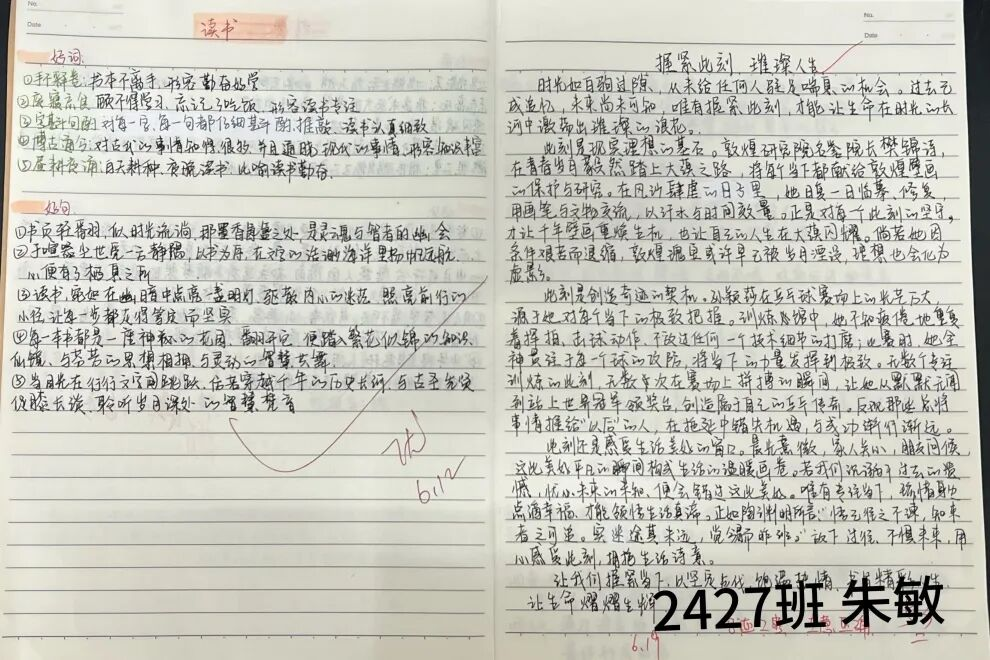 No.
Date
读书
好词
①手不释卷:书本不离手,形容勤奋好学
②废寝忘食 顾不得学习,忘记了吃饭 形容读书专注
③字斟句酌 对每一字,每一句都仔细斟酌、推敲,读书认真细致
④博古通今:对古代的事情知得很多,并且通晓现代的事情,形容知识丰富
⑤昼耕夜诵:白天耕种,夜晚读书 比喻读书勤奋
好句
①书页轻翻,似时光流淌,那墨香氤氲之处,是灵魂与智者的幽会
②于喧嚣尘世觅一方静隅,以书为舟,在知识浩渺海洋里扬帆远航
心便有了栖息之所
③读书,宛如在幽暗中点亮一盏明灯,驱散内心的迷茫,照亮前行的
小径,让每一步都走得笃定而坚实
④每一本书都是一座神秘的花园,翻开它,便踏入繁花似锦的知识
仙境,与芬芳的思想相拥,与灵动的智慧共舞
⑤当目光在行行文字间跳跃,仿若穿越千年的历史长河,与古圣先贤
促膝长谈,聆听岁月深处的智慧梵音
6.12
No.
Date
握紧此刻 璀璨人生
时光如白驹过隙,从未给任何人驻足喘息的机会。过去已
成追忆,未来尚未可知,唯有握紧此刻,才能让生命在时光的长
河中激荡出璀璨的浪花。
此刻是实现理想的基石。敦煌研究院名誉院长樊锦诗,
在青春岁月毅然踏上大漠之路,将每个当下都献给敦煌壁画
的保护与研究。在风沙肆虐的日子里,她日复一日临摹、修复
用画笔与文物交流,以汗水与时间较量。正是对每个此刻的坚守,
才让千年壁画重焕生机,也让自己的人生在大漠闪耀。倘若她因
条件艰苦而退缩,敦煌瑰宝或许早已被岁月湮没,理想也会化为
虚影。
此刻是创造奇迹的契机。孙颖莎在乒乓球赛场上的光芒万丈,
源于她对每个当下的极致把握。训练场馆中,她不知疲倦地重复
着挥拍、击球动作,不放过任何一个技术细节的打磨;比赛时,她全
神贯注于每一个球的攻防,将当下的力量发挥到极致。无数个专注
训练的此刻,无数次在赛场上拼搏的瞬间,让她从默默无闻
到站上世界冠军领奖台,创造属于自己的乒乓传奇。反观那些总将
事情推给“以后”的人,在拖延中错失机遇,与成功渐行渐远。
此刻还是感受生活美好的窗口。晨光熹微,家人关心,朋友问候
这些美好平凡的瞬间构成生活的温暖画卷。若我们沉湎于过去的遗
憾,忧心未来的未知,便会错过这些美好。唯有专注当下,珍惜身边
点滴幸福,才能领悟生活真谛。正如陶渊明所言:“悟已往之不谏,知来
者之可追。实迷途其未远,觉今是而昨非。”放下过往,不惧未来,用
心感受此刻,拥抱生活诗意。
让我们握紧当下,以坚定
让生命熠熠生辉
6.19
2427班 朱敏